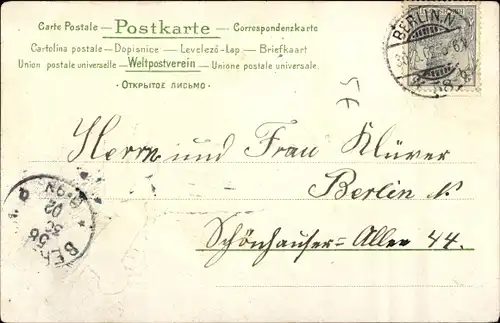 Carte Postale — Postkarte — Correspondenzkarte
Cartolina postale — Dopisnice — Levelező-Lap — Briefkaart
Union postale universelle — Weltpostverein — Unione postale universale.
· Открытое письмо ·
BERLIN.N.
Herrn und Frau Klüver
Berlin N
Schönhauser=Allee 44.